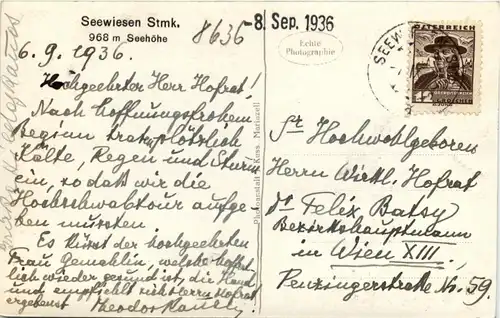 Seewiesen Stmk.
968 m Seehöhe
8636
-8. Sep. 1936
Echte
Photographie
SEEW
ÖSTERREICH
12
GROSCHEN
6.9.1936.
Hochgeehrter Herr Hofrat!
Nach hoffnungsfrohem
Beginn trat plötzlich
Kälte, Regen und Sturm
ein, so daß wir die
Hochschwabtour aufge-
ben mussten
Es küsst der hochgeehrten
Frau Gemahlin, welche hoffent-
lich wieder gesund ist, die Hand
und empfiehlt sich Herrn Hofrat
ergebenst Theodor
Photoanstalt Kuss, Mariazell
Sr Hochwohlgeboren
Herrn Wirkl. Hofrat
dr Felix Batsy
Bezirkshauptmann
in Wien XIII.
Penzingerstraße Nr. 59.